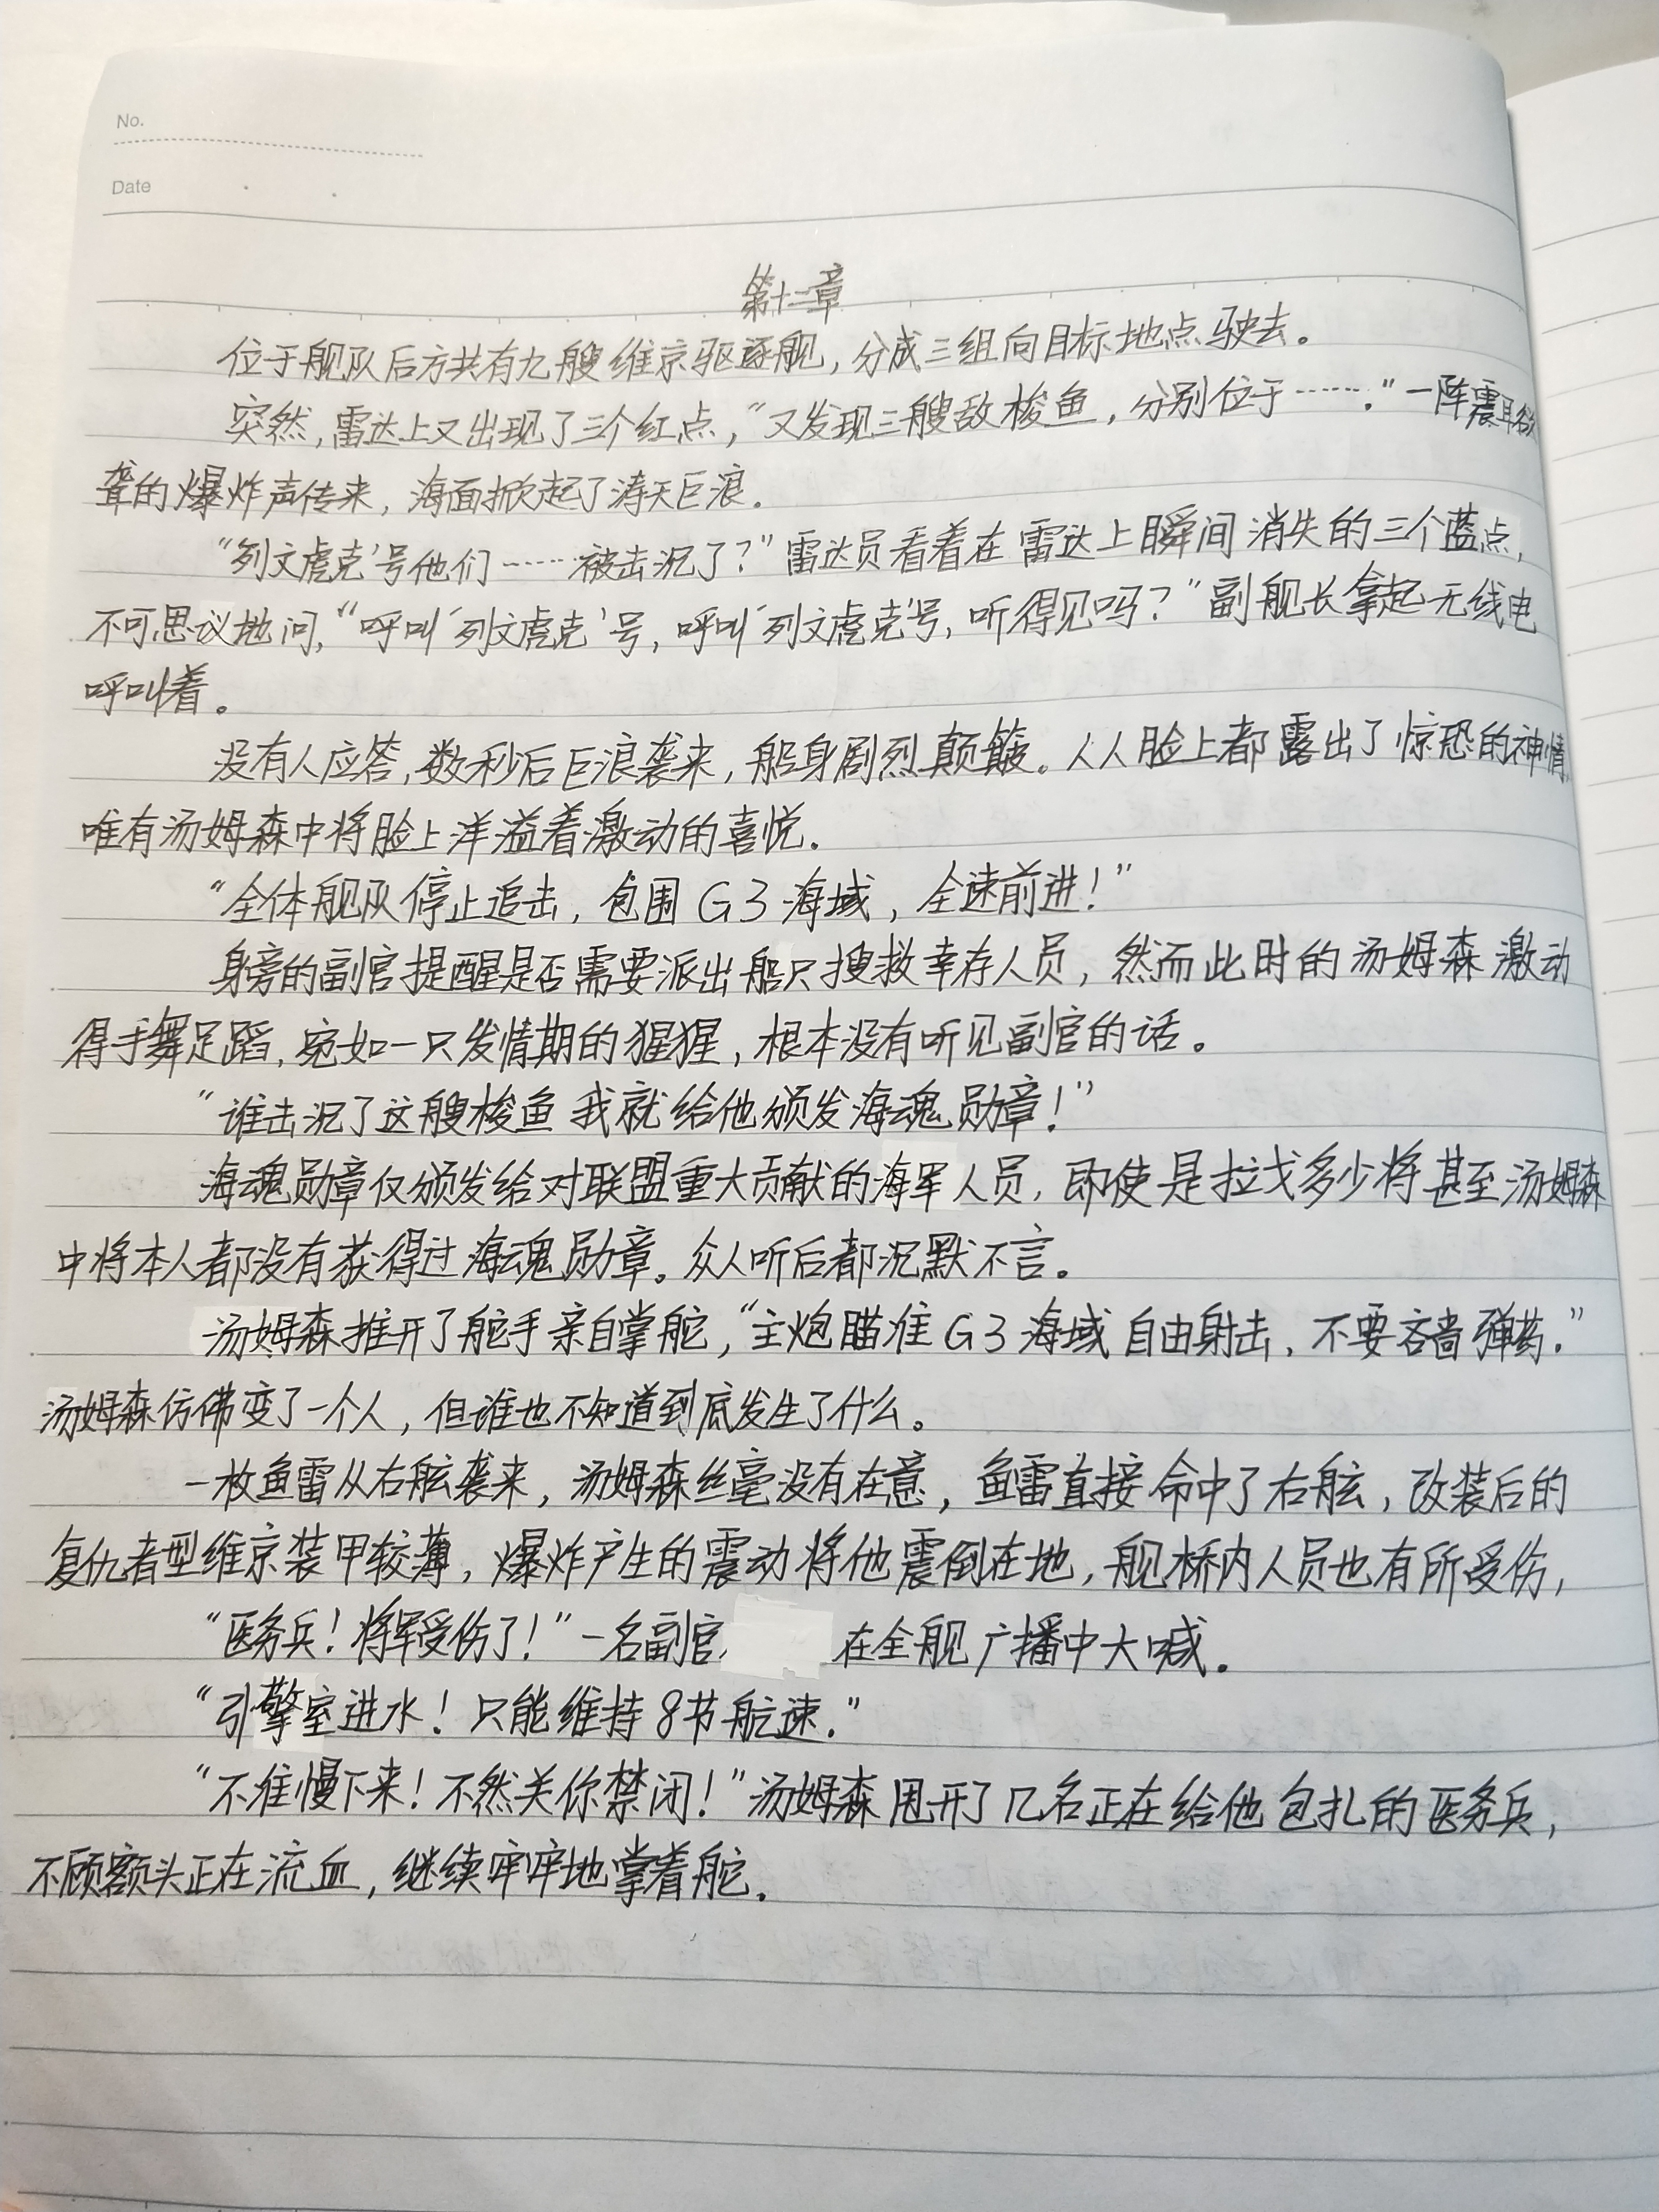 No.
Date
第十二章
位于舰队后方共有九艘维京驱逐舰，分成三组向目标地点驶去。
突然，雷达上又出现了三个红点，“又发现三艘敌梭鱼，分别位于……。”一阵震耳欲
聋的爆炸声传来，海面掀起了涛天巨浪。
“‘列文虎克’号他们……被击沉了？”雷达员看着在雷达上瞬间消失的三个蓝点，
不可思议地问，“呼叫‘列文虎克’号，呼叫‘列文虎克’号，听得见吗？”副舰长拿起无线电
呼叫着。
没有人应答，数秒后巨浪袭来，船身剧烈颠簸。人人脸上都露出了惊恐的神情，
唯有汤姆森中将脸上洋溢着激动的喜悦。
“全体舰队停止追击，包围G3海域，全速前进！”
身旁的副官提醒是否需要派出船只搜救幸存人员，然而此时的汤姆森激动
得手舞足蹈，宛如一只发情期的猩猩，根本没有听见副官的话。
“谁击沉了这艘梭鱼我就给他颁发海魂勋章！”
海魂勋章仅颁发给对联盟重大贡献的海军人员，即使是拉戈多少将甚至汤姆森
中将本人都没有获得过海魂勋章。众人听后都沉默不言。
汤姆森推开了舵手亲自掌舵，“主炮瞄准G3海域自由射击，不要吝啬弹药。”
汤姆森仿佛变了一个人，但谁也不知道到底发生了什么。
一枚鱼雷从右舷袭来，汤姆森丝毫没有在意，鱼雷直接命中了右舷，改装后的
复仇者型维京装甲较薄，爆炸产生的震动将他震倒在地，舰桥内人员也有所受伤，
“医务兵！将军受伤了！”一名副官在全舰广播中大喊。
“引擎室进水！只能维持8节航速。”
“不准慢下来！不然关你禁闭！”汤姆森甩开了几名正在给他包扎的医务兵，
不顾额头正在流血，继续牢牢地掌着舵。